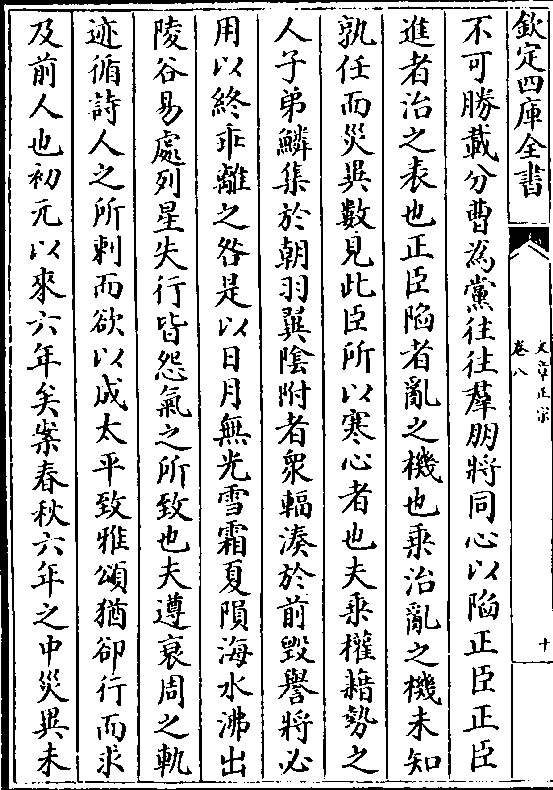 欽定四庫全書
文章正宗
卷八
十
不可勝載分曹為黨往往羣朋將同心以陷正臣正臣
進者治之表也正臣陷者亂之機也乗治亂之機未知
孰任而災異數見此臣所以寒心者也夫乗權藉勢之
人子弟鱗集於朝羽翼隂附者衆輻湊於前毀譽將必
用以終乖離之咎是以日月無光雪霜夏隕海水沸出
陵谷易處列星失行皆怨氣之所致也夫遵衰周之軌
迹循詩人之所刺而欲以成太平致雅頌猶卻行而求
及前人也初元以來六年矣案春秋六年之中災異未